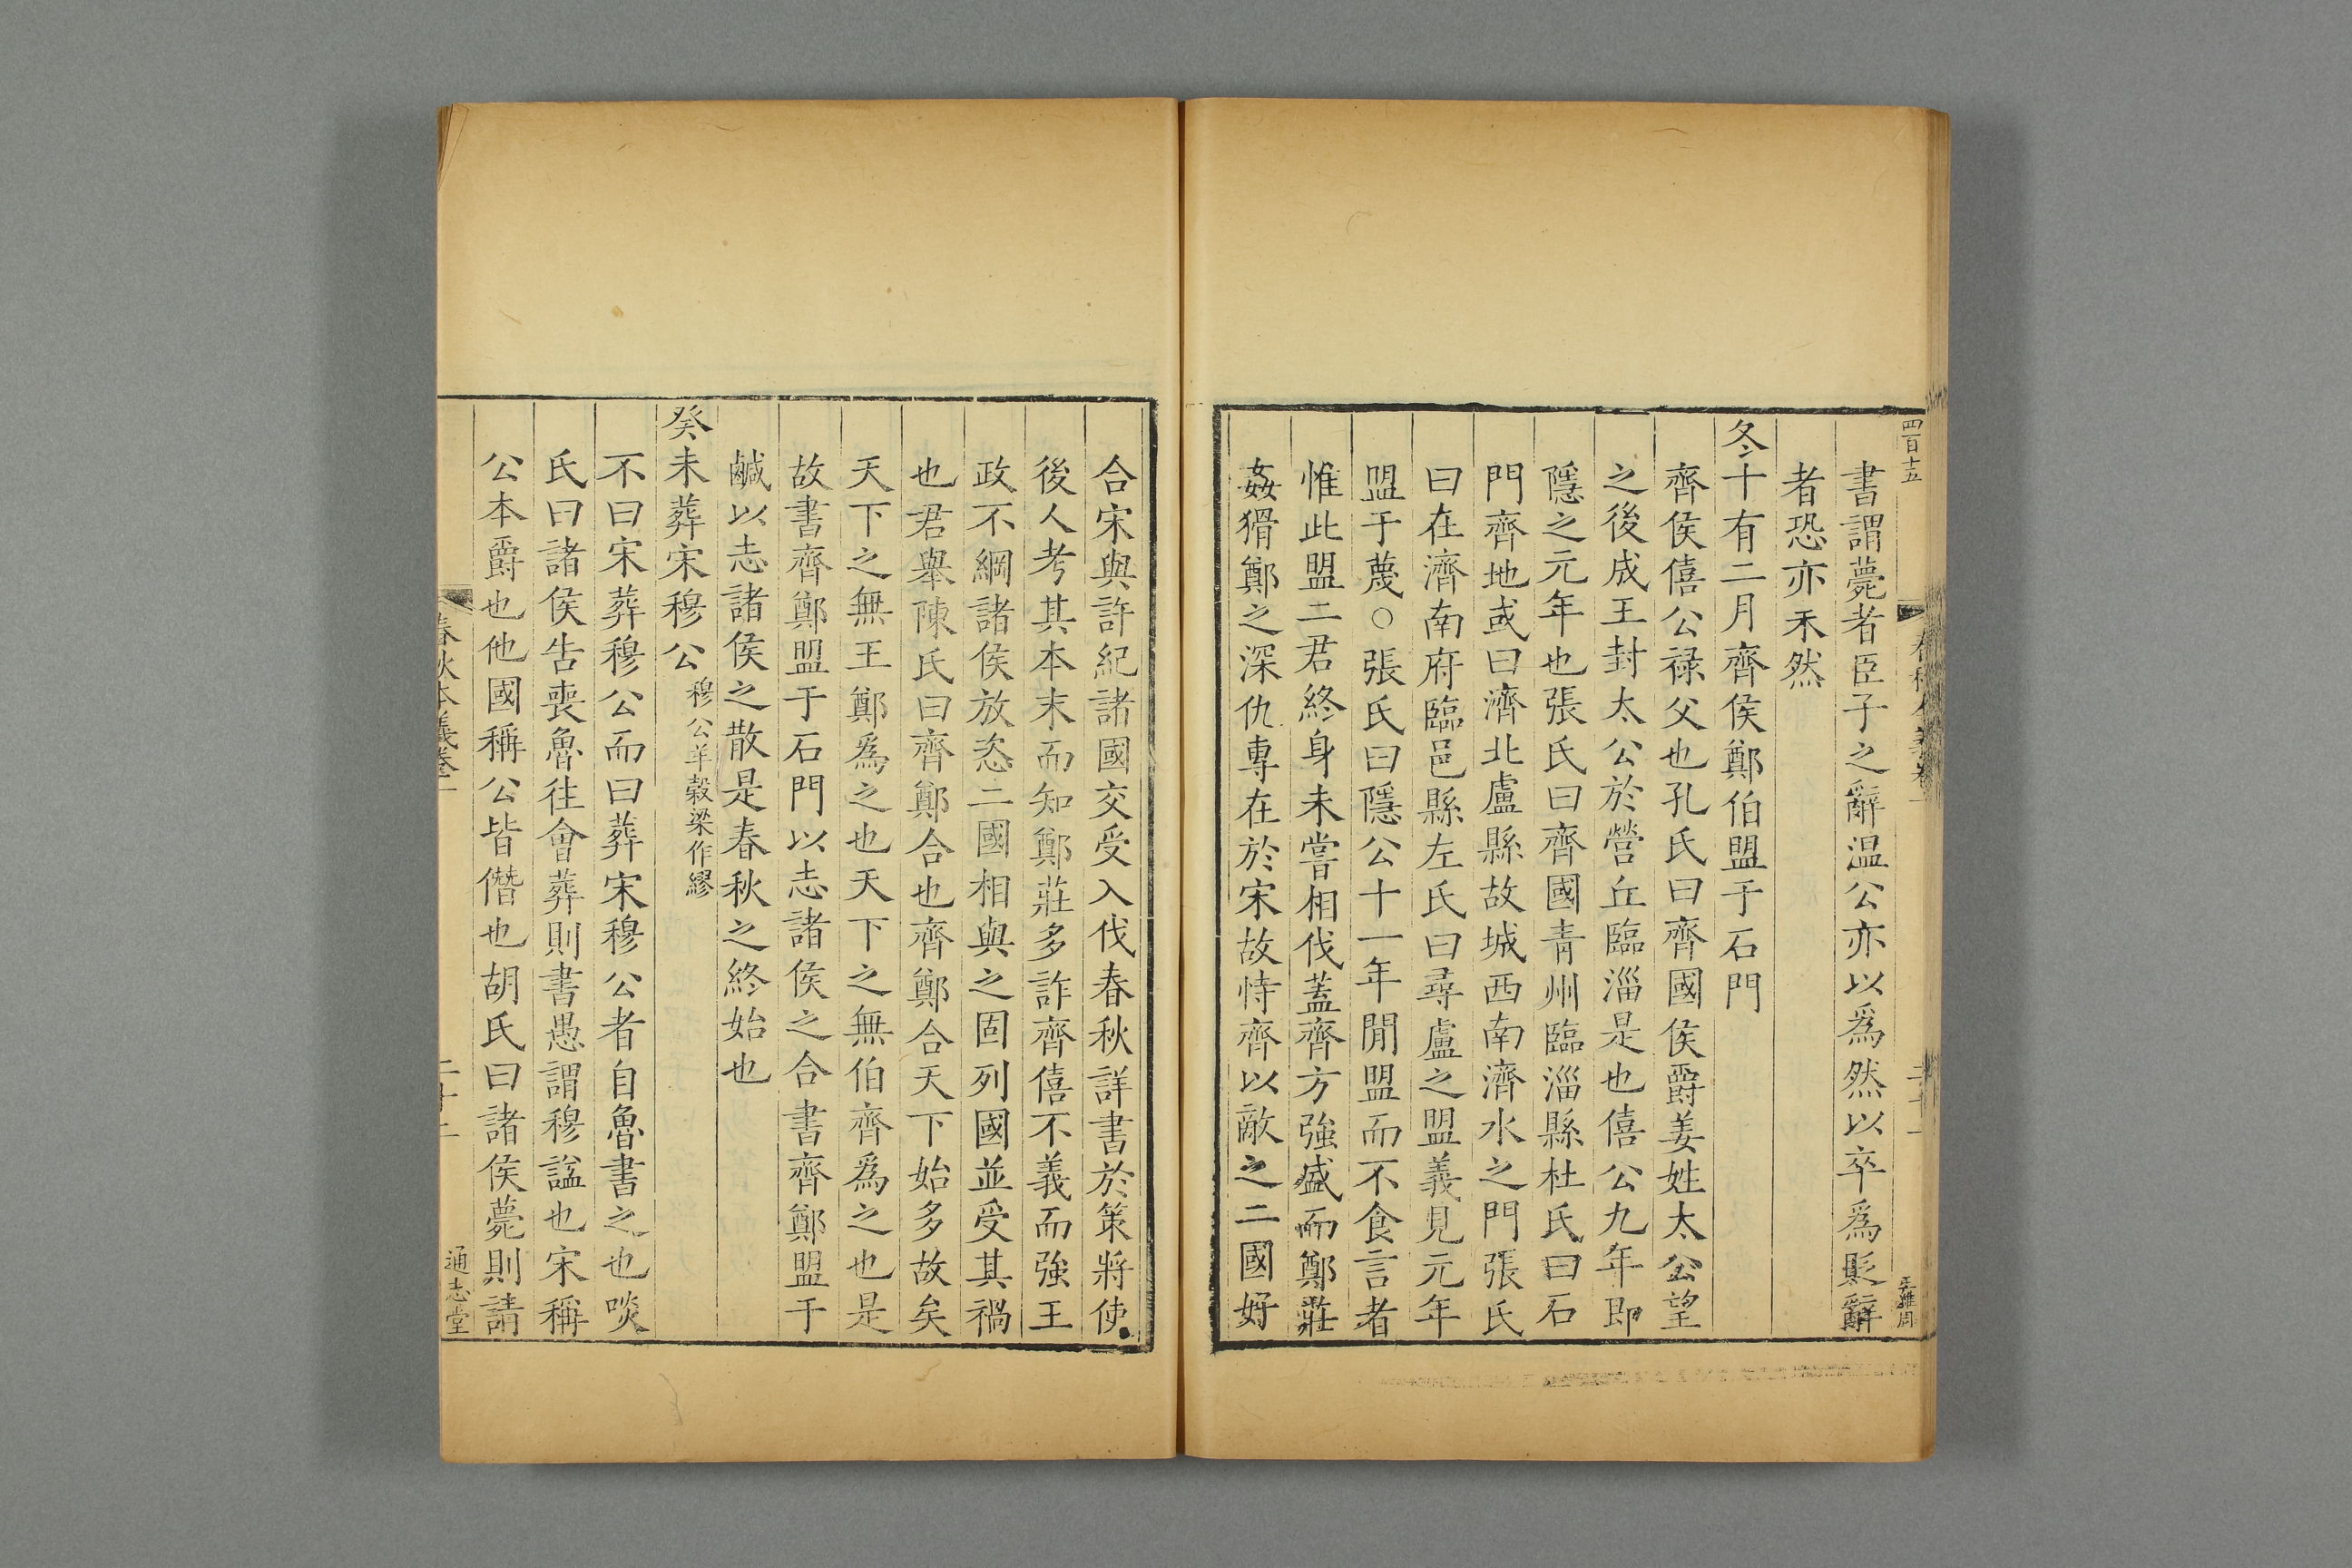 四百十五
書謂薨者臣子之辭温公亦以爲然以卒爲貶辭
者恐亦未然
冬十有二月齊侯鄭伯盟于石門
齊侯僖公禄父也孔氏曰齊國侯爵姜姓太公望
之後成王封太公於營丘臨淄是也僖公九年即
隱之元年也張氏曰齊國青州臨淄縣杜氏曰石
門齊地或曰濟北盧縣故城西南濟水之門張氏
曰在濟南府臨邑縣左氏曰尋盧之盟義見元年
盟于蔑○張氏曰隱公十一年閒盟而不食言者
惟此盟二君終身未嘗相伐蓋齊方強盛而鄭莊
姦猾鄭之深仇專在於宋故恃齊以敵之二國好
合宋與許紀諸國交受入伐春秋詳書於策將使
後人考其本末而知鄭莊多詐齊僖不義而強王
政不綱諸侯放恣二國相與之固列國並受其禍
也君舉陳氏曰齊鄭合也齊鄭合天下始多故矣
天下之無王鄭爲之也天下之無伯齊爲之也是
故書齊鄭盟于石門以志諸侯之合書齊鄭盟于
鹹以志諸侯之散是春秋之終始也
癸未葬宋穆公穆公羊穀梁作繆
不曰宋葬穆公而曰葬宋穆公者自魯書之也啖
氏曰諸侯告喪魯往會葬則書愚謂穆諡也宋稱
公本爵也他國稱公皆僭也胡氏曰諸侯薨則請
春秋本義卷一 二十二 通志堂